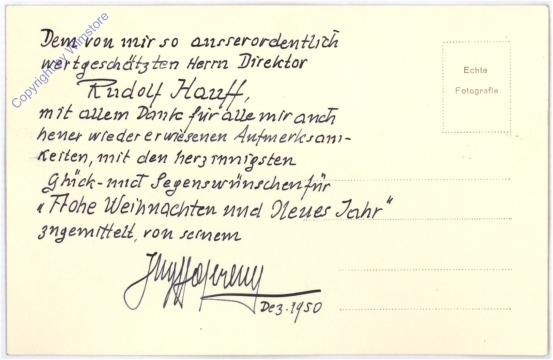 Dem von mir so ausserordentlich
wertgeschätzten Herrn Direktor
Rudolf Hauff,
mit allem Dank für alle mir auch
heuer wieder erwiesenen Aufmerksam-
keiten, mit den herzinnigsten
Glück- und Segenswünschen für
"Frohe Weihnachten und Neues Jahr"
zugemittelt, von seinem
Dez. 1950
Echte
Fotografie
Copyright by Wilmstore